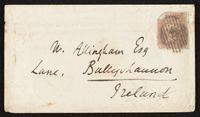 W. Allingham Esq
Lane, Ballyshannon
Ireland